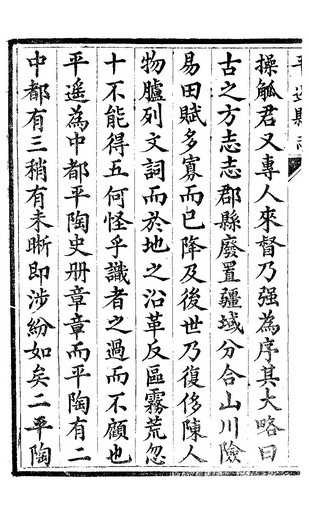 平遥縣志
操觚君又專人來督乃强為序其大略曰
古之方志志郡縣廢置疆域分合山川險
易田賦多寡而已降及後世乃復侈陳人
物臚列文詞而於地之沿革反區霧荒忽
十不能得五何怪乎識者之過而不顧也
平遥為中都平陶史册章章而平陶有二
中都有三稍有未晰即涉紛如矣二平陶